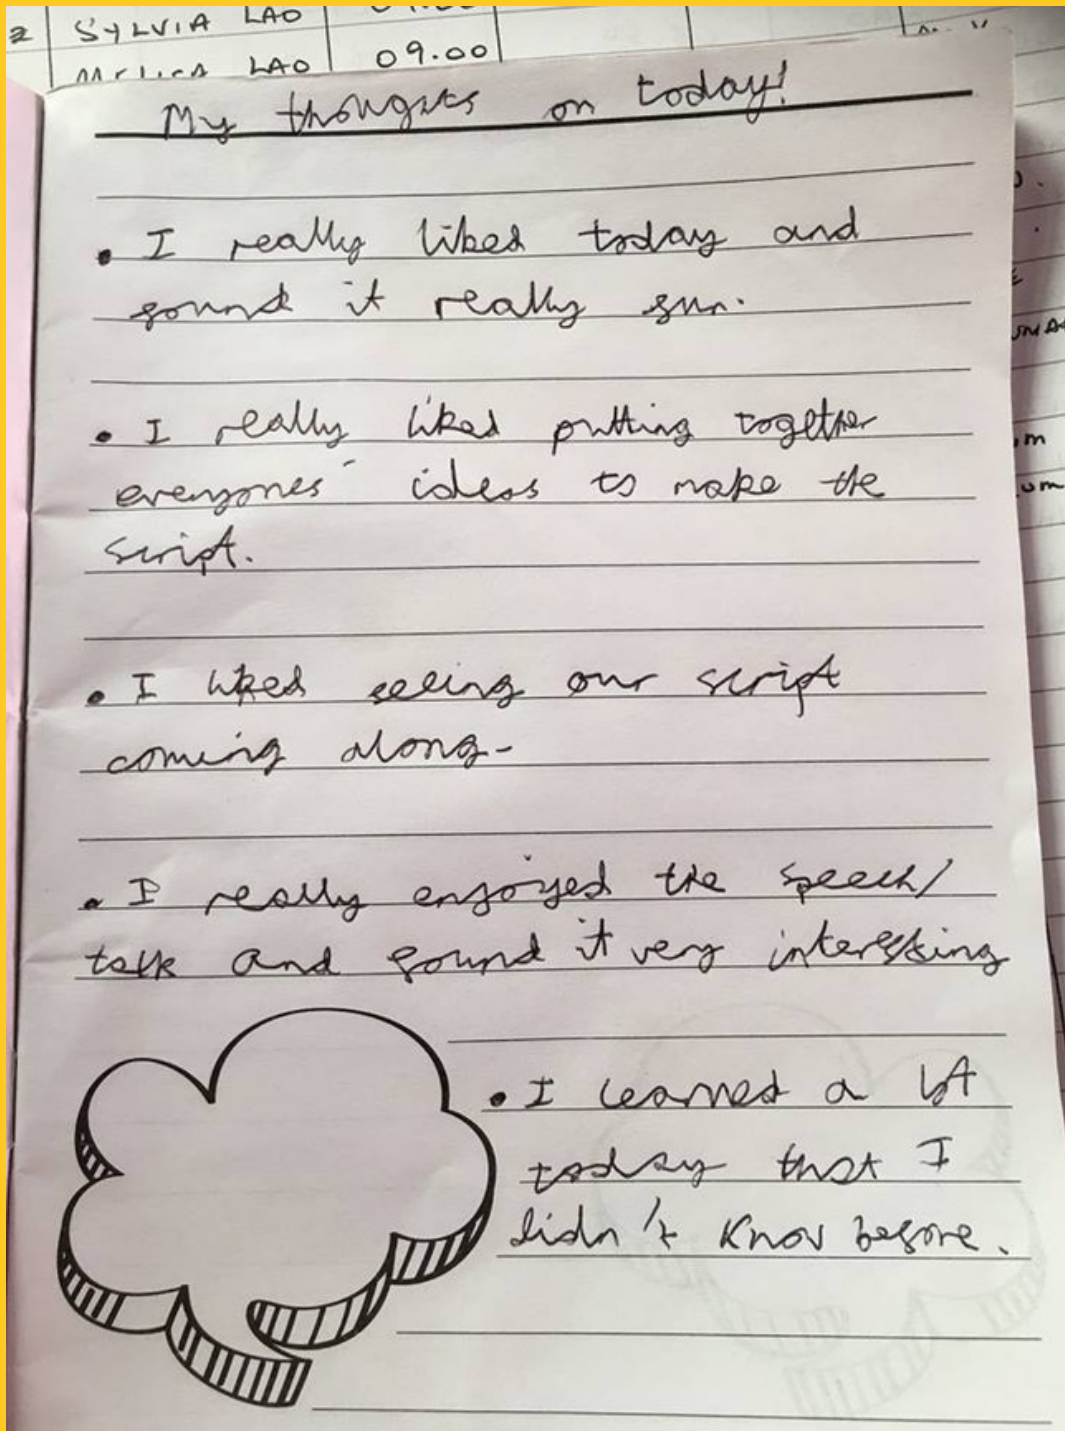 2 SYLVIA LAO
LAO 09.00
My thoughts on today!
• I really liked today and
found it really fun.
• I really liked putting together
everyones' ideas to make the
script.
• I liked seeing our script
coming along.
• I really enjoyed the speech/
talk and found it very interesting
• I learned a lot
today that I
didn't know before.